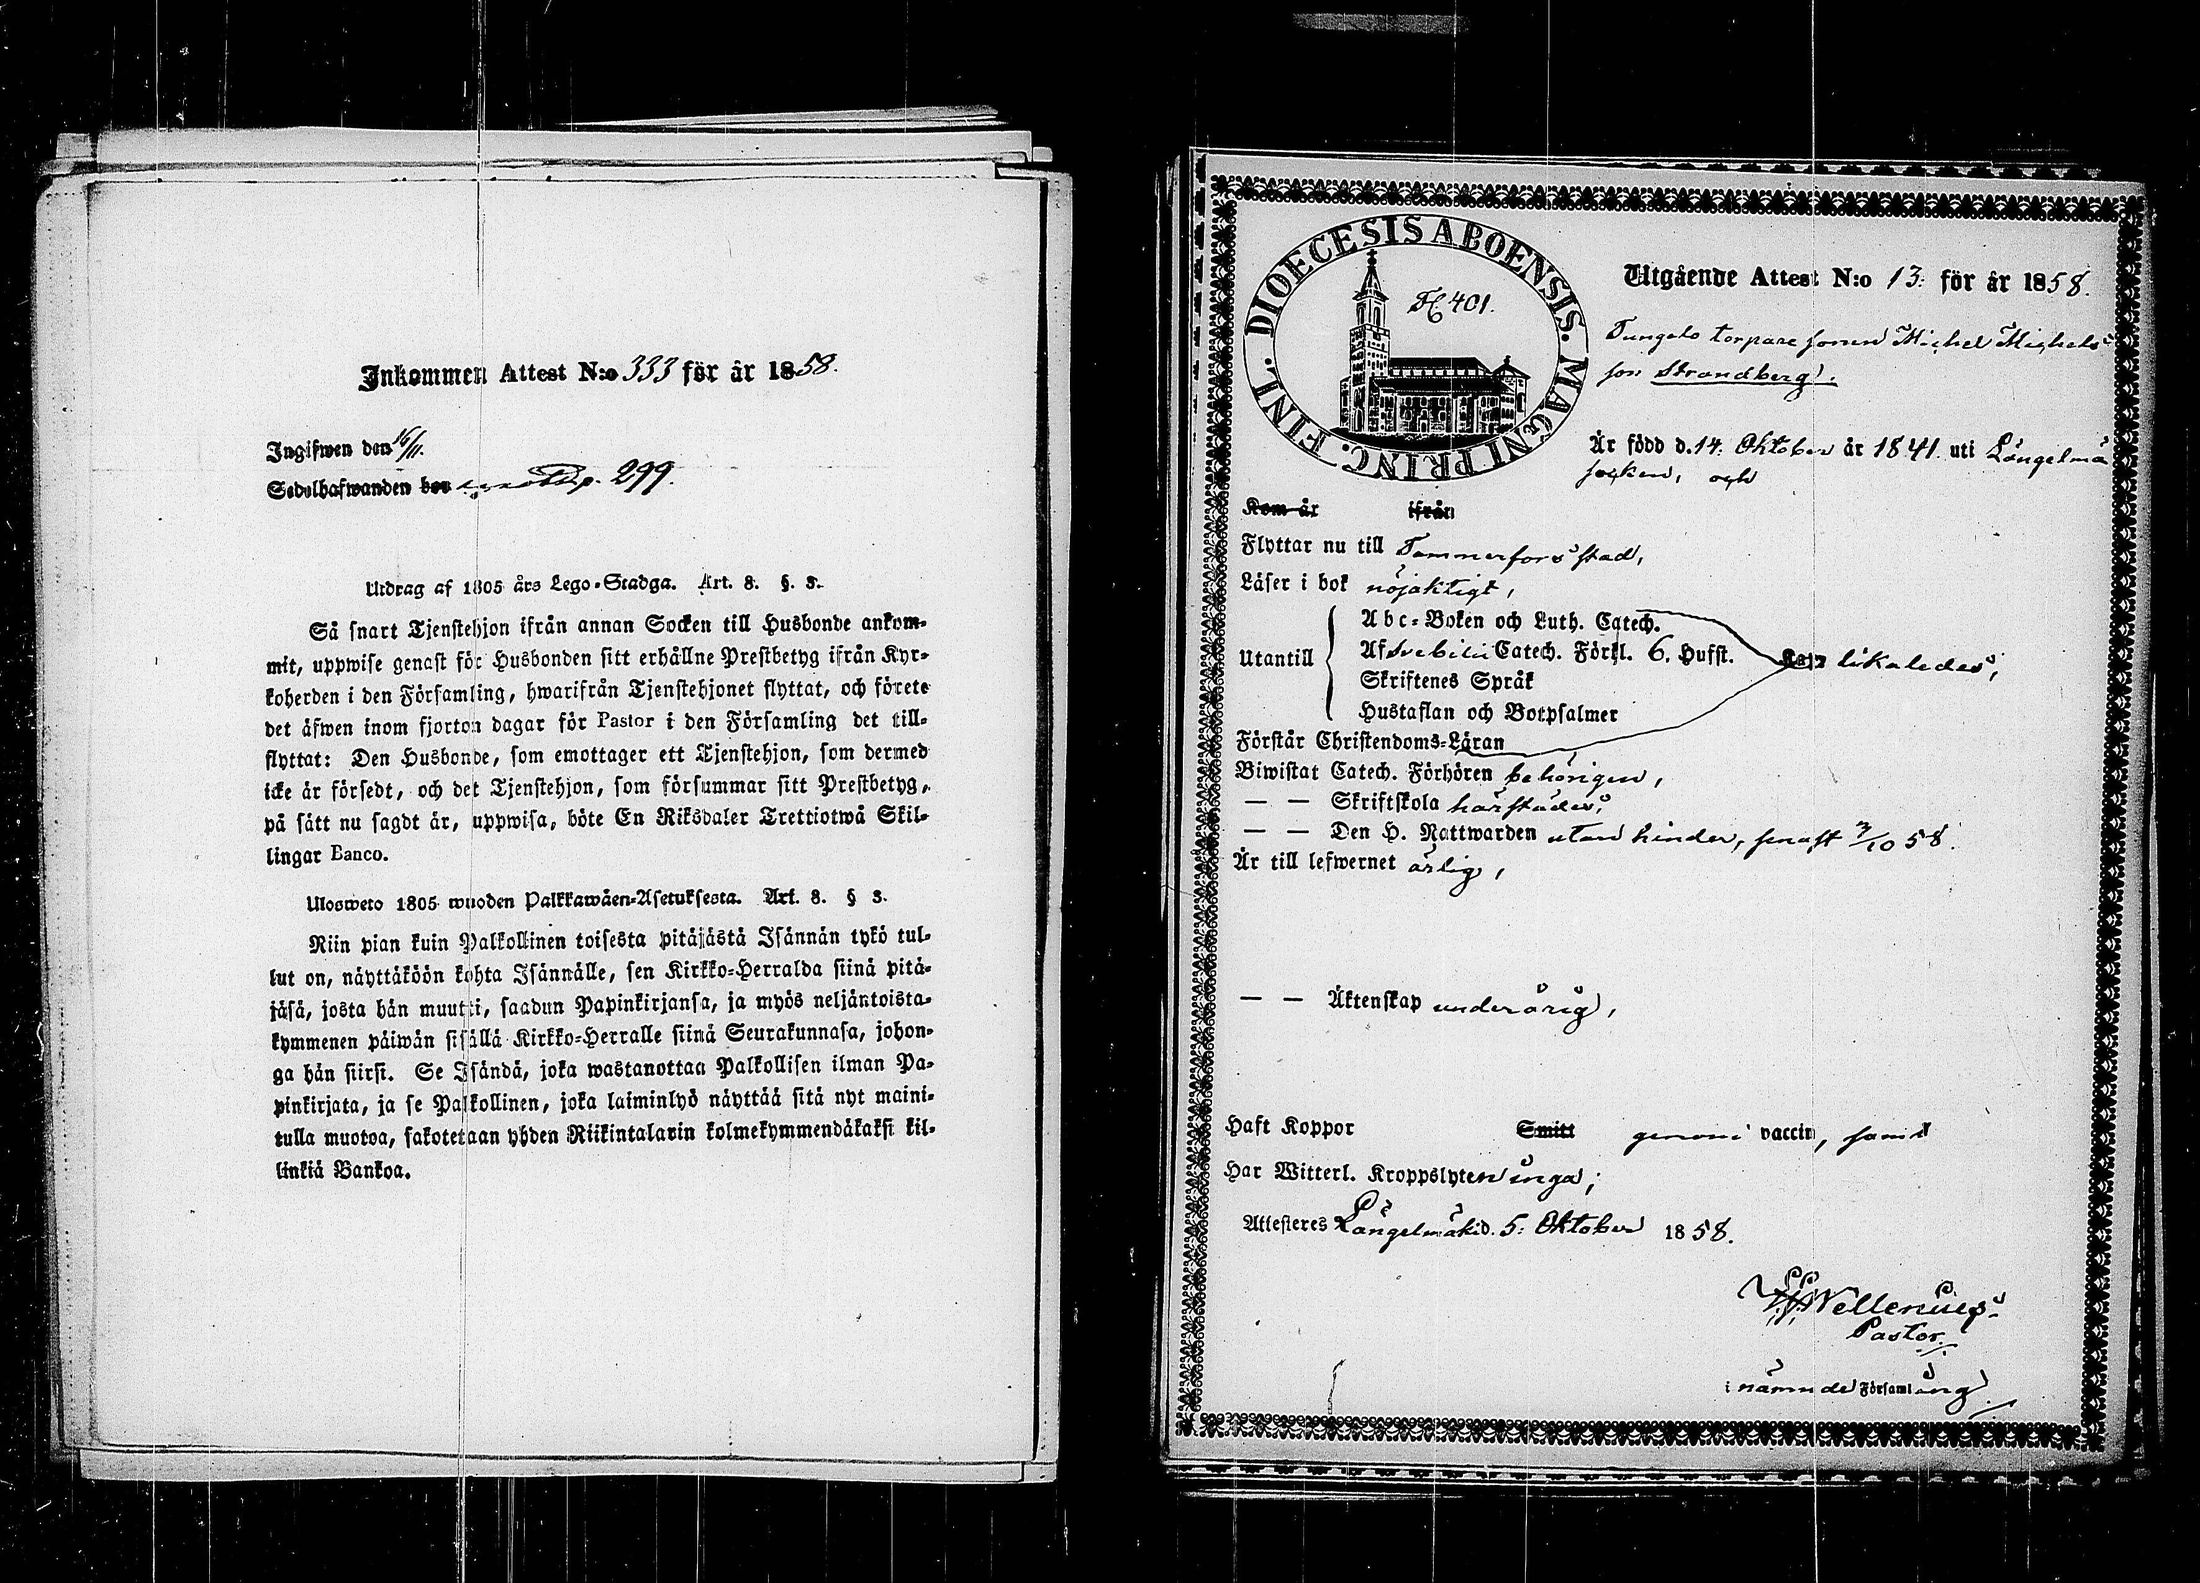 Inkommen Attest N:o 333 för år 1858.
Ingifwen den 16/11.
Sedelhafwanden p. 299.
Utdrag af 1805 års Lego-Stadga. Art. 8. §. 3.
Så snart Tjenstehjon ifrån annan Socken till Husbonde ankom-
mit, uppwise genast för Husbonden sitt erhållne Prestbetyg ifrån Kyr-
koherden i den Församling, hwarifrån Tjenstehjonet flyttat, och förete
det äfwen inom fjorton dagar för Pastor i den Församling det till-
flyttat: Den Husbonde, som emottager ett Tjenstehjon, som dermed
icke är försedt, och det Tjenstehjon, som försummar sitt Prestbetyg,
på sätt nu sagdt är, uppwisa, böte En Riksdaler Trettiotwå Skil-
lingar Banco.
Ulosweto 1805 wuoden Palkkawäen-Asetuksesta. Art. 8. § 3.
Niin pian kuin Palkollinen toisesta pitäjästä Isännän tykö tul-
lut on, näyttäköön kohta Isännälle, sen Kirkko-Herralda siinä pitä-
jäsä, josta hän muutti, saadun Papinkirjansa, ja myös neljäntoista-
kymmenen päiwän sisällä Kirkko-Herralle siinä Seurakunnasa, johon-
ga hän siirsi. Se Isändä, joka wastanottaa Palkollisen ilman Pa-
pinkirjata, ja se Palkollinen, joka laiminlyö näyttää sitä nyt maini-
tulla muotoa, sakotetaan yhden Riikintalarin kolmekymmendäkaksi kil-
linkiä Bankoa.
DIOECESIS ABOENSIS. MAGNI PRINC. FINL.
401.
Utgående Attest N:o 13: för år 1858.
Tungelo torpare sonen Michel Michels
son Strandberg.
Är född d. 14: Oktober år 1841 uti Längelmä
socken, och
Kom år ifrån
Flyttar nu till Tammerfors stad,
Läser i bok nöjaktigt,
Utantill
Abc-Boken och Luth. Catech.
Af Svebilii Catech. Förkl. 6. Hufst. likaledes;
Skriftenes Språk
Hustaflan och Botpsalmer
Förstår Christendoms-Läran
Biwistat Catech. Förhören behörigen,
— — Skriftskola härstädes;
— — Den H. Nattwarden utan hinder, senast 3/10 58.
Är till lefwernet ärlig,
— — Äktenskap underårig,
Haft Koppor Smitt genom vaccin, samt
Har Witterl. Kroppslyten inga;
Attesteres Längelmäki d. 5: Oktober 1858.
Wellenius
Pastor.
i nämnde Församling